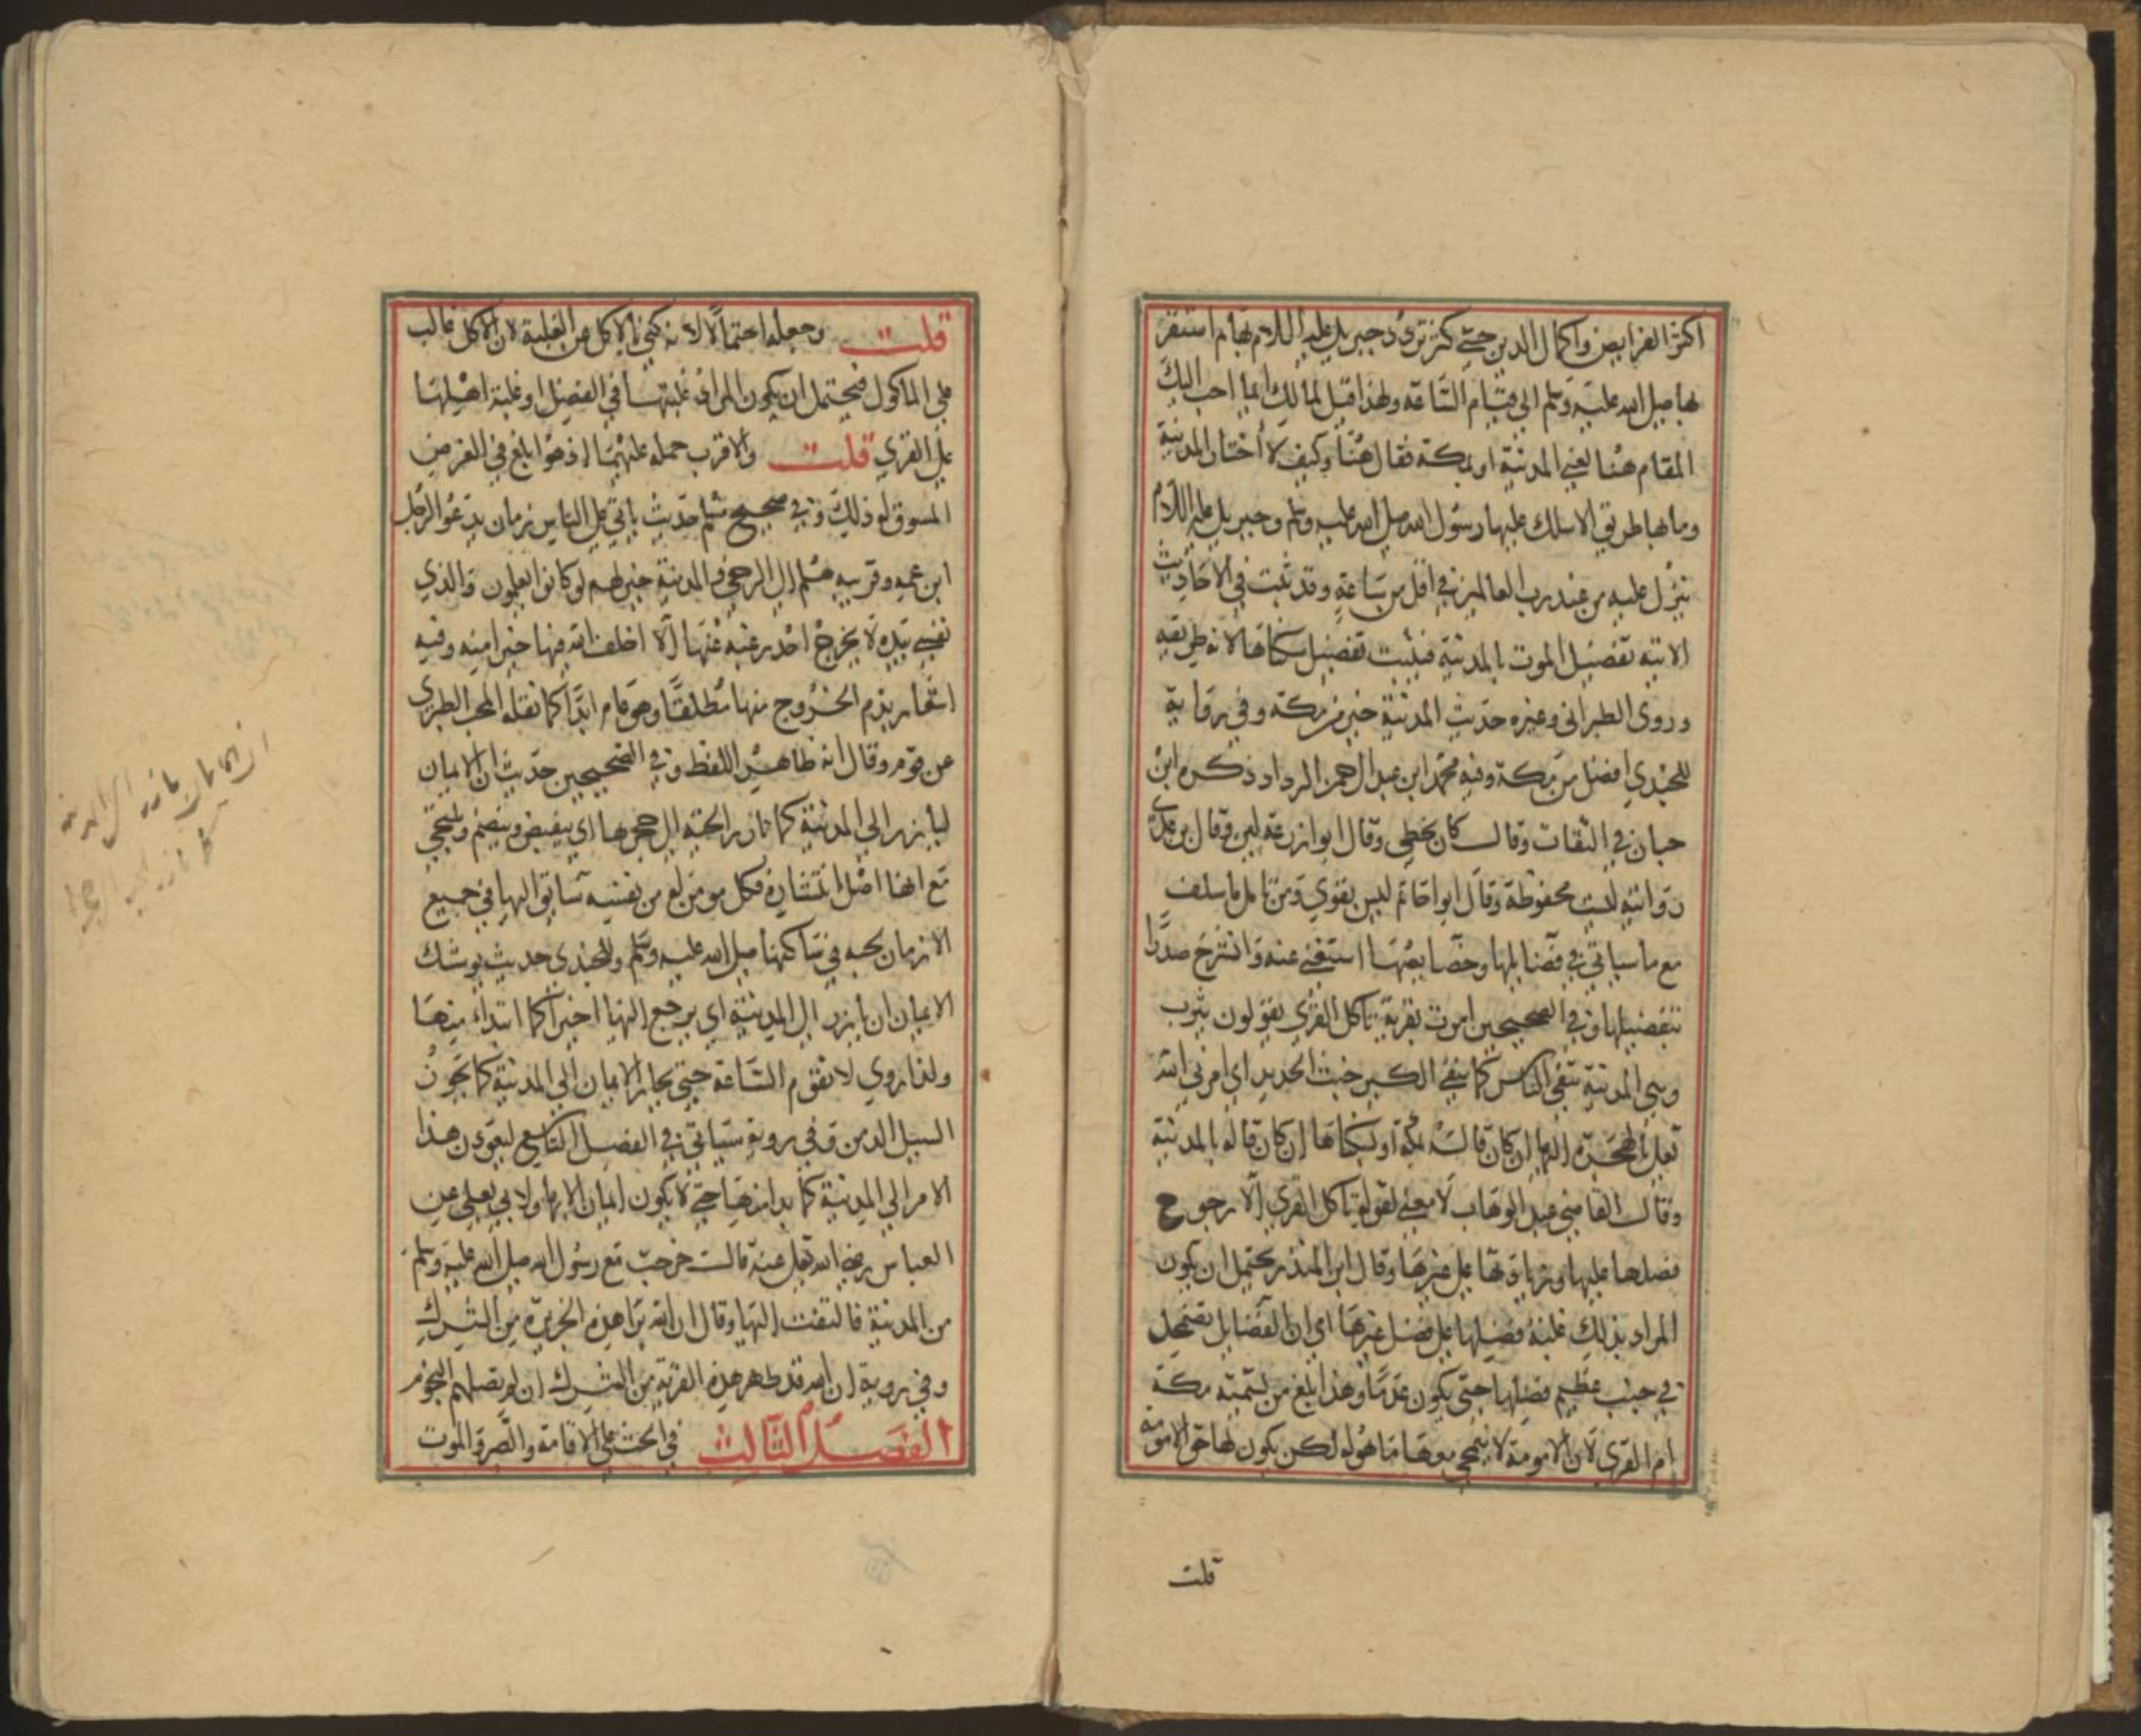 اكثر الفرايض واكمال الدين حتى كثر تردد جبريل عليه السلام بها ثم استقر
بها صلى الله عليه وسلم الى قيام الساعة ولهذا قيل لمالك ايما احب اليك
المقام هنا يعني المدينة او بمكة فقال هنا وكيف لا اختار المدينة
وما بها طريق الا سلك عليها رسول الله صلى الله عليه وسلم وجبريل عليه السلام
ينزل عليه من عند رب العالمين في اقل من ساعة وقد ثبت في الاحاديث
الاتية تفضيل الموت بالمدينة فيثبت تفضيل سكناها لانه طريقه
وروى الطبراني وغيره حديث المدينة خير من مكة وفي رواية
للجندي افضل من مكة وفيه محمد ابن عبد الرحمن الرداد ذكره ابن
حبان في الثقات وقال كان يخطى وقال ابوا زرعة لين وقال بن عدي
روايته ليست محفوظة وقال ابوا حاتم ليس بقوي ومن تامل ما سلف
مع ما سياتي في فضايلها وخصايصها استغنى عنه وانشرح صدرا
بتفضيلها وفي الصحيحين امرت بقرية تاكل القرى يقولون يثرب
وهي المدينة تنفي الناس كما ينفي الكير خبث الحديد اي امرني الله
تعلى بالهجرة اليها ان كان قاله بمكة او بسكناها ان كان قاله بالمدينة
وقال القاضي عبد الوهاب لا معنى لقوله تاكل القرى الا رجوح
فضلها عليها وزيادتها على غيرها وقال ابن المنذر يحتمل ان يكون
المراد بذلك غلبة فضيلها على فضل غيرها اي ان الفضايل تضمحل
في جنب عظيم فضلها حتى يكون عدما وهذا ابلغ من تسمية مكة
ام القرى لان الامومة لا ينمحي معها ما هو له لكن يكون لها حق الامومة
قلت
قلت وجعله احتمالا لانه كنى بالاكل عن الغلبة لان الاكل غالب
على الماكول فيحتمل ان يكون المراد غلبتها في الفضل او غلبة اهلها
على القرى قلت والاقرب حمله عليهما اذ هو ابلغ في الغرض
المسوق له ذلك وفي صحيح مسلم حديث ياتي على الناس زمان يدعو الرجل
ابن عمه وقريبه هلم الى الرخى والمدينة خير لهم لو كانوا يعلمون والذي
نفسي بيده لا يخرج احد رغبة عنها الا اخلف الله فيها خيرا منه وفيه
اشعار بذم الخروج منها مطلقا وهو عام ابدا كما نقله المحب الطبري
عن قوم وقال انه ظاهر اللفظ وفي الصحيحين حديث ان الايمان
ليأرز الى المدينة كما تارز الحية الى حجرها اي ينقبض وينضم ويلتجي
مع انها اصل انتشاره فكل مومن له من نفسه سايق اليها في جميع
الازمان لحبه في ساكنها صلى الله عليه وسلم وللجندي حديث يوشك
الايمان ان يارز الى المدينة اي يرجع اليها اخيرا كما ابتداء منها
ولذا روي لا تقوم الساعة حتى يحاز الايمان الى المدينة كما يحوز
السيل الدمن وفي روية ستاتي في الفصل التاسع ليعودن هذا
الامر الى المدينة كما بدا منها حتى لا يكون ايمان الا بها ولابي يعلى عن
العباس رضي الله تعلى عنه قالت خرجت مع رسول الله صلى الله عليه وسلم
من المدينة فالتفت اليها وقال ان الله برا هذه الجزيرة من الشرك
وفي روية ان الله قد طهر هذه القرية من الشرك ان لم تضلهم النجوم
الفصل الثالث في الحث على الاقامة والصبر والموت